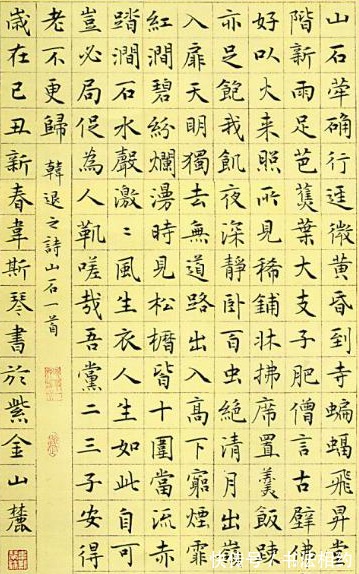 山石犖确行逕微黃昏到寺蝙蝠飛昇堂
階新雨足芭蕉葉大支子肥僧言古壁佛
好以火来照所見稀鋪牀拂席置羹飯疎
亦足飽我飢夜深靜卧百虫絶清月出嶺
入扉天明獨去無道路出入高下窮煙霏
紅澗碧紛爛漫時見松櫪皆十圍當流赤
踏澗石水聲激〻風生衣人生如此自可
豈必局促為人鞿嗟哉吾黨二三子安得
老不更歸 韓退之詩山石一首
歲在己丑新春韋斯琴書於紫金山麓